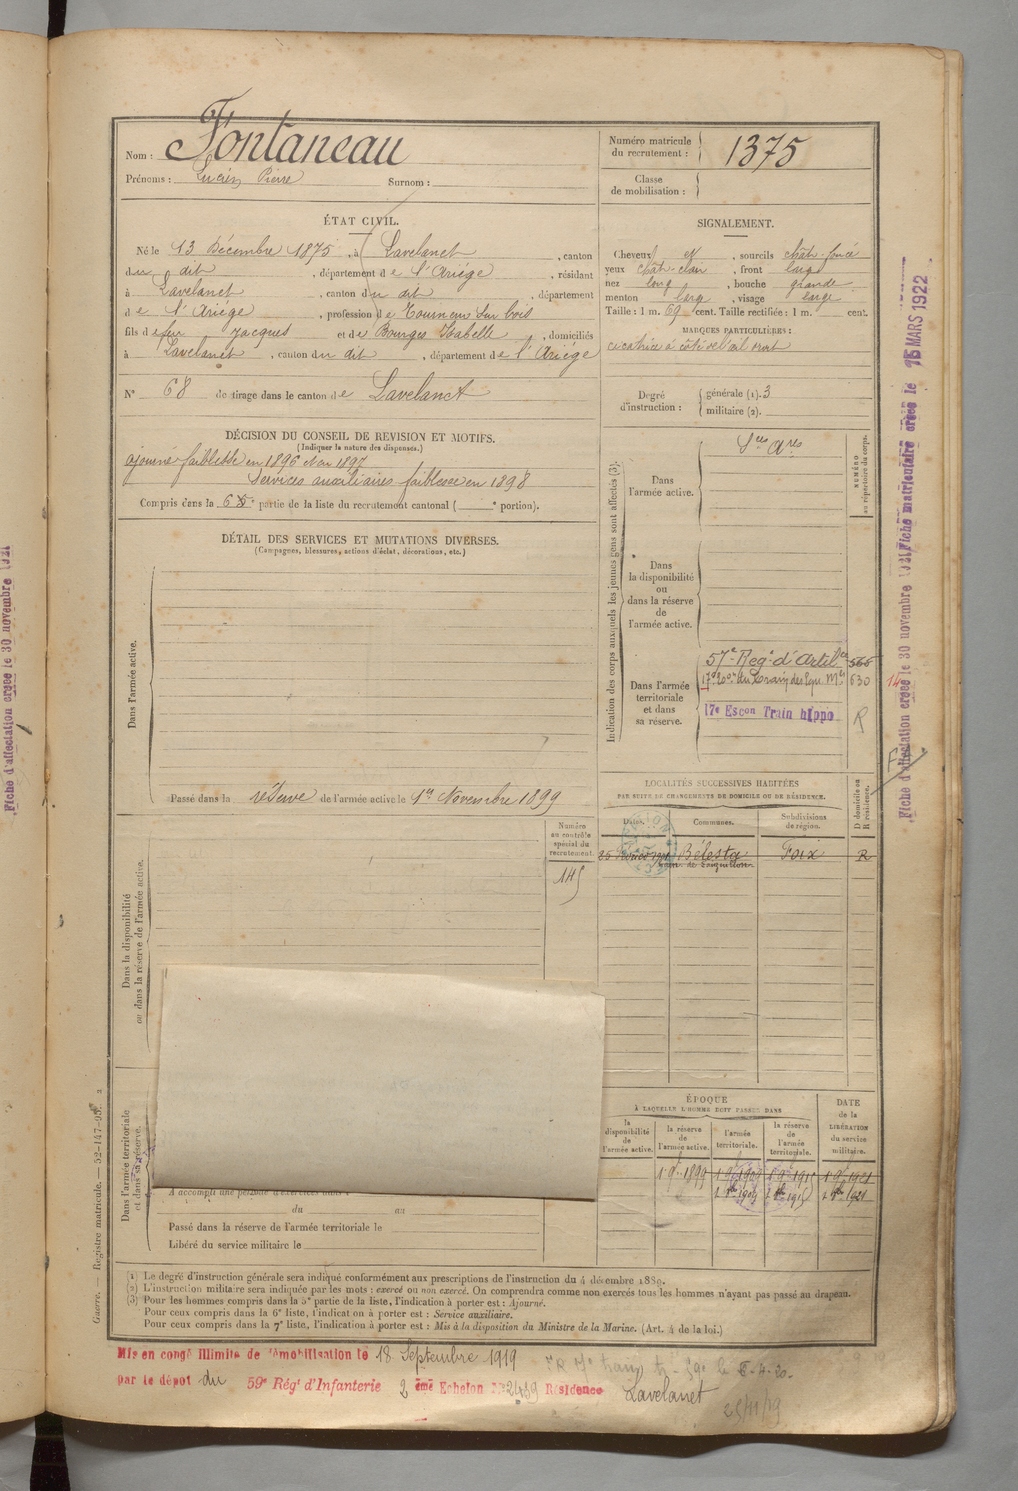 Nom : Fontaneau
Prénoms : Lucien Pierre Surnom :
Numéro matricule du recrutement : 1375
Classe de mobilisation :
ÉTAT CIVIL.
Né le 13 Décembre 1875, à Lavelanet, canton
du dit, département de l'Ariège, résidant
à Lavelanet, canton du dit, département
de l'Ariège, profession de Tourneur sur bois
fils de feu Jacques et de Bourges Isabelle, domiciliés
à Lavelanet, canton du dit, département de l'Ariège
N° 68 de tirage dans le canton de Lavelanet
SIGNALEMENT.
Cheveux et, sourcils chât-foncé
yeux chât-clair, front large
nez long, bouche grande
menton large, visage large
Taille : 1 m. 69 cent. Taille rectifiée : 1 m. cent.
MARQUES PARTICULIÈRES :
cicatrice à côté de l'œil droit
Degré d'instruction : générale (1). 3
militaire (2).
DÉCISION DU CONSEIL DE REVISION ET MOTIFS.
(Indiquer la nature des dispenses.)
ajourné faiblesse en 1896 et en 1897
Services auxiliaires faiblesse en 1898
Compris dans la 6e partie de la liste du recrutement cantonal ( e portion).
DÉTAIL DES SERVICES ET MUTATIONS DIVERSES.
(Campagnes, blessures, actions d'éclat, décorations, etc.)
Dans l'armée active.
Passé dans la réserve de l'armée active le 1er Novembre 1899
Indication des corps auxquels les jeunes gens sont affectés (3).
NUMÉRO au répertoire du corps.
Dans l'armée active.
Dans la disponibilité ou dans la réserve de l'armée active.
Dans l'armée territoriale et dans sa réserve.
57e Regt d'Artie 565
630
17e Escon Train hippo
R
LOCALITÉS SUCCESSIVES HABITÉES
PAR SUITE DE CHANGEMENTS DE DOMICILE OU DE RÉSIDENCE.
D domicile ou R résidence.
Dates. Communes. Subdivisions de région.
Bélesta Foix R
Numéro au contrôle spécial du recrutement.
145
Dans la disponibilité ou dans la réserve de l'armée active.
Dans l'armée territoriale et dans sa réserve.
A accompli une période d'exercices dans
du au
Passé dans la réserve de l'armée territoriale le
Libéré du service militaire le
ÉPOQUE
À LAQUELLE L'HOMME DOIT PASSER DANS
la disponibilité de l'armée active.
la réserve de l'armée active.
l'armée territoriale.
la réserve de l'armée territoriale.
DATE de la LIBÉRATION du service militaire.
(1) Le degré d'instruction générale sera indiqué conformément aux prescriptions de l'instruction du 4 décembre 1889.
(2) L'instruction militaire sera indiquée par les mots : exercé ou non exercé. On comprendra comme non exercés tous les hommes n'ayant pas passé au drapeau.
(3) Pour les hommes compris dans la 5e partie de la liste, l'indication à porter est : Ajourné.
Pour ceux compris dans la 6e liste, l'indication à porter est : Service auxiliaire.
Pour ceux compris dans la 7e liste, l'indication à porter est : Mis à la disposition du Ministre de la Marine. (Art. 4 de la loi.)
Mis en congé illimité de démobilisation le 18 Septembre 1919
par le dépot du 59e Régt d'Infanterie 2 ème Echelon N° 2489 Résidence Lavelanet
25/11/19
Guerre. — Registre matricule. — 52-147-95.
Fiche d'affectation créée le 30 novembre 1921
Fiche matriculaire créée le 15 MARS 1922
Fiche d'affectation créée le 30 novembre 1921